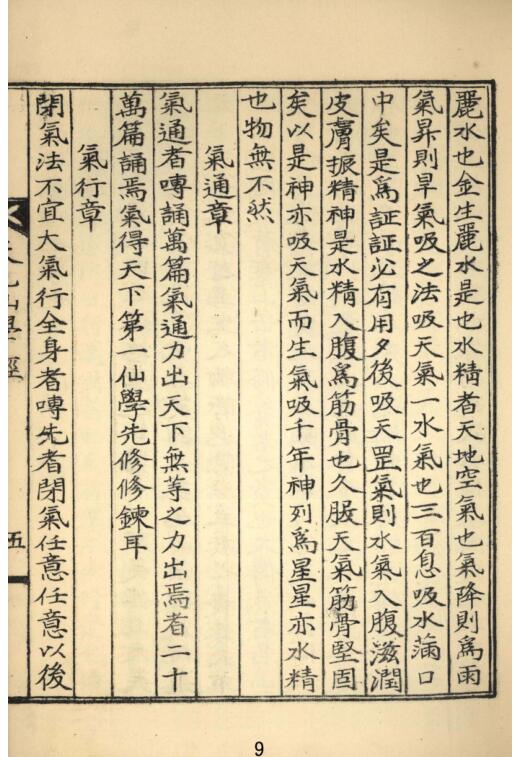 麗水也金生麗水是也水精者天地空氣也氣降則爲雨
氣昇則旱氣吸之法吸天氣一水氣也三百息吸水滿口
中矣是爲証証必有用夕後吸天罡氣則水氣入腹滋潤
皮膚振精神是水精入腹爲筋骨也久服天氣筋骨堅固
矣以是神亦吸天氣而生氣吸千年神列爲星星亦水精
也物無不然
氣通章
氣通者嘑誦萬篇氣通力出天下無等之力出焉者二十
萬篇誦焉氣得天下第一仙學先修修鍊耳
氣行章
閉氣法不宜大氣行全身者嘑先者閉氣任意任意以後
五
9